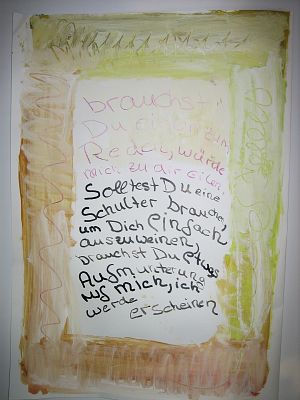 brauchst
Du einen zum
Reden, würde
mich zu dir eilen.
Solltest Du eine
Schulter brauchen,
um Dich einfach
auszuweinen,
brauchst Du etwas
Aufmunterung
ruf mich, ich
werde erscheinen